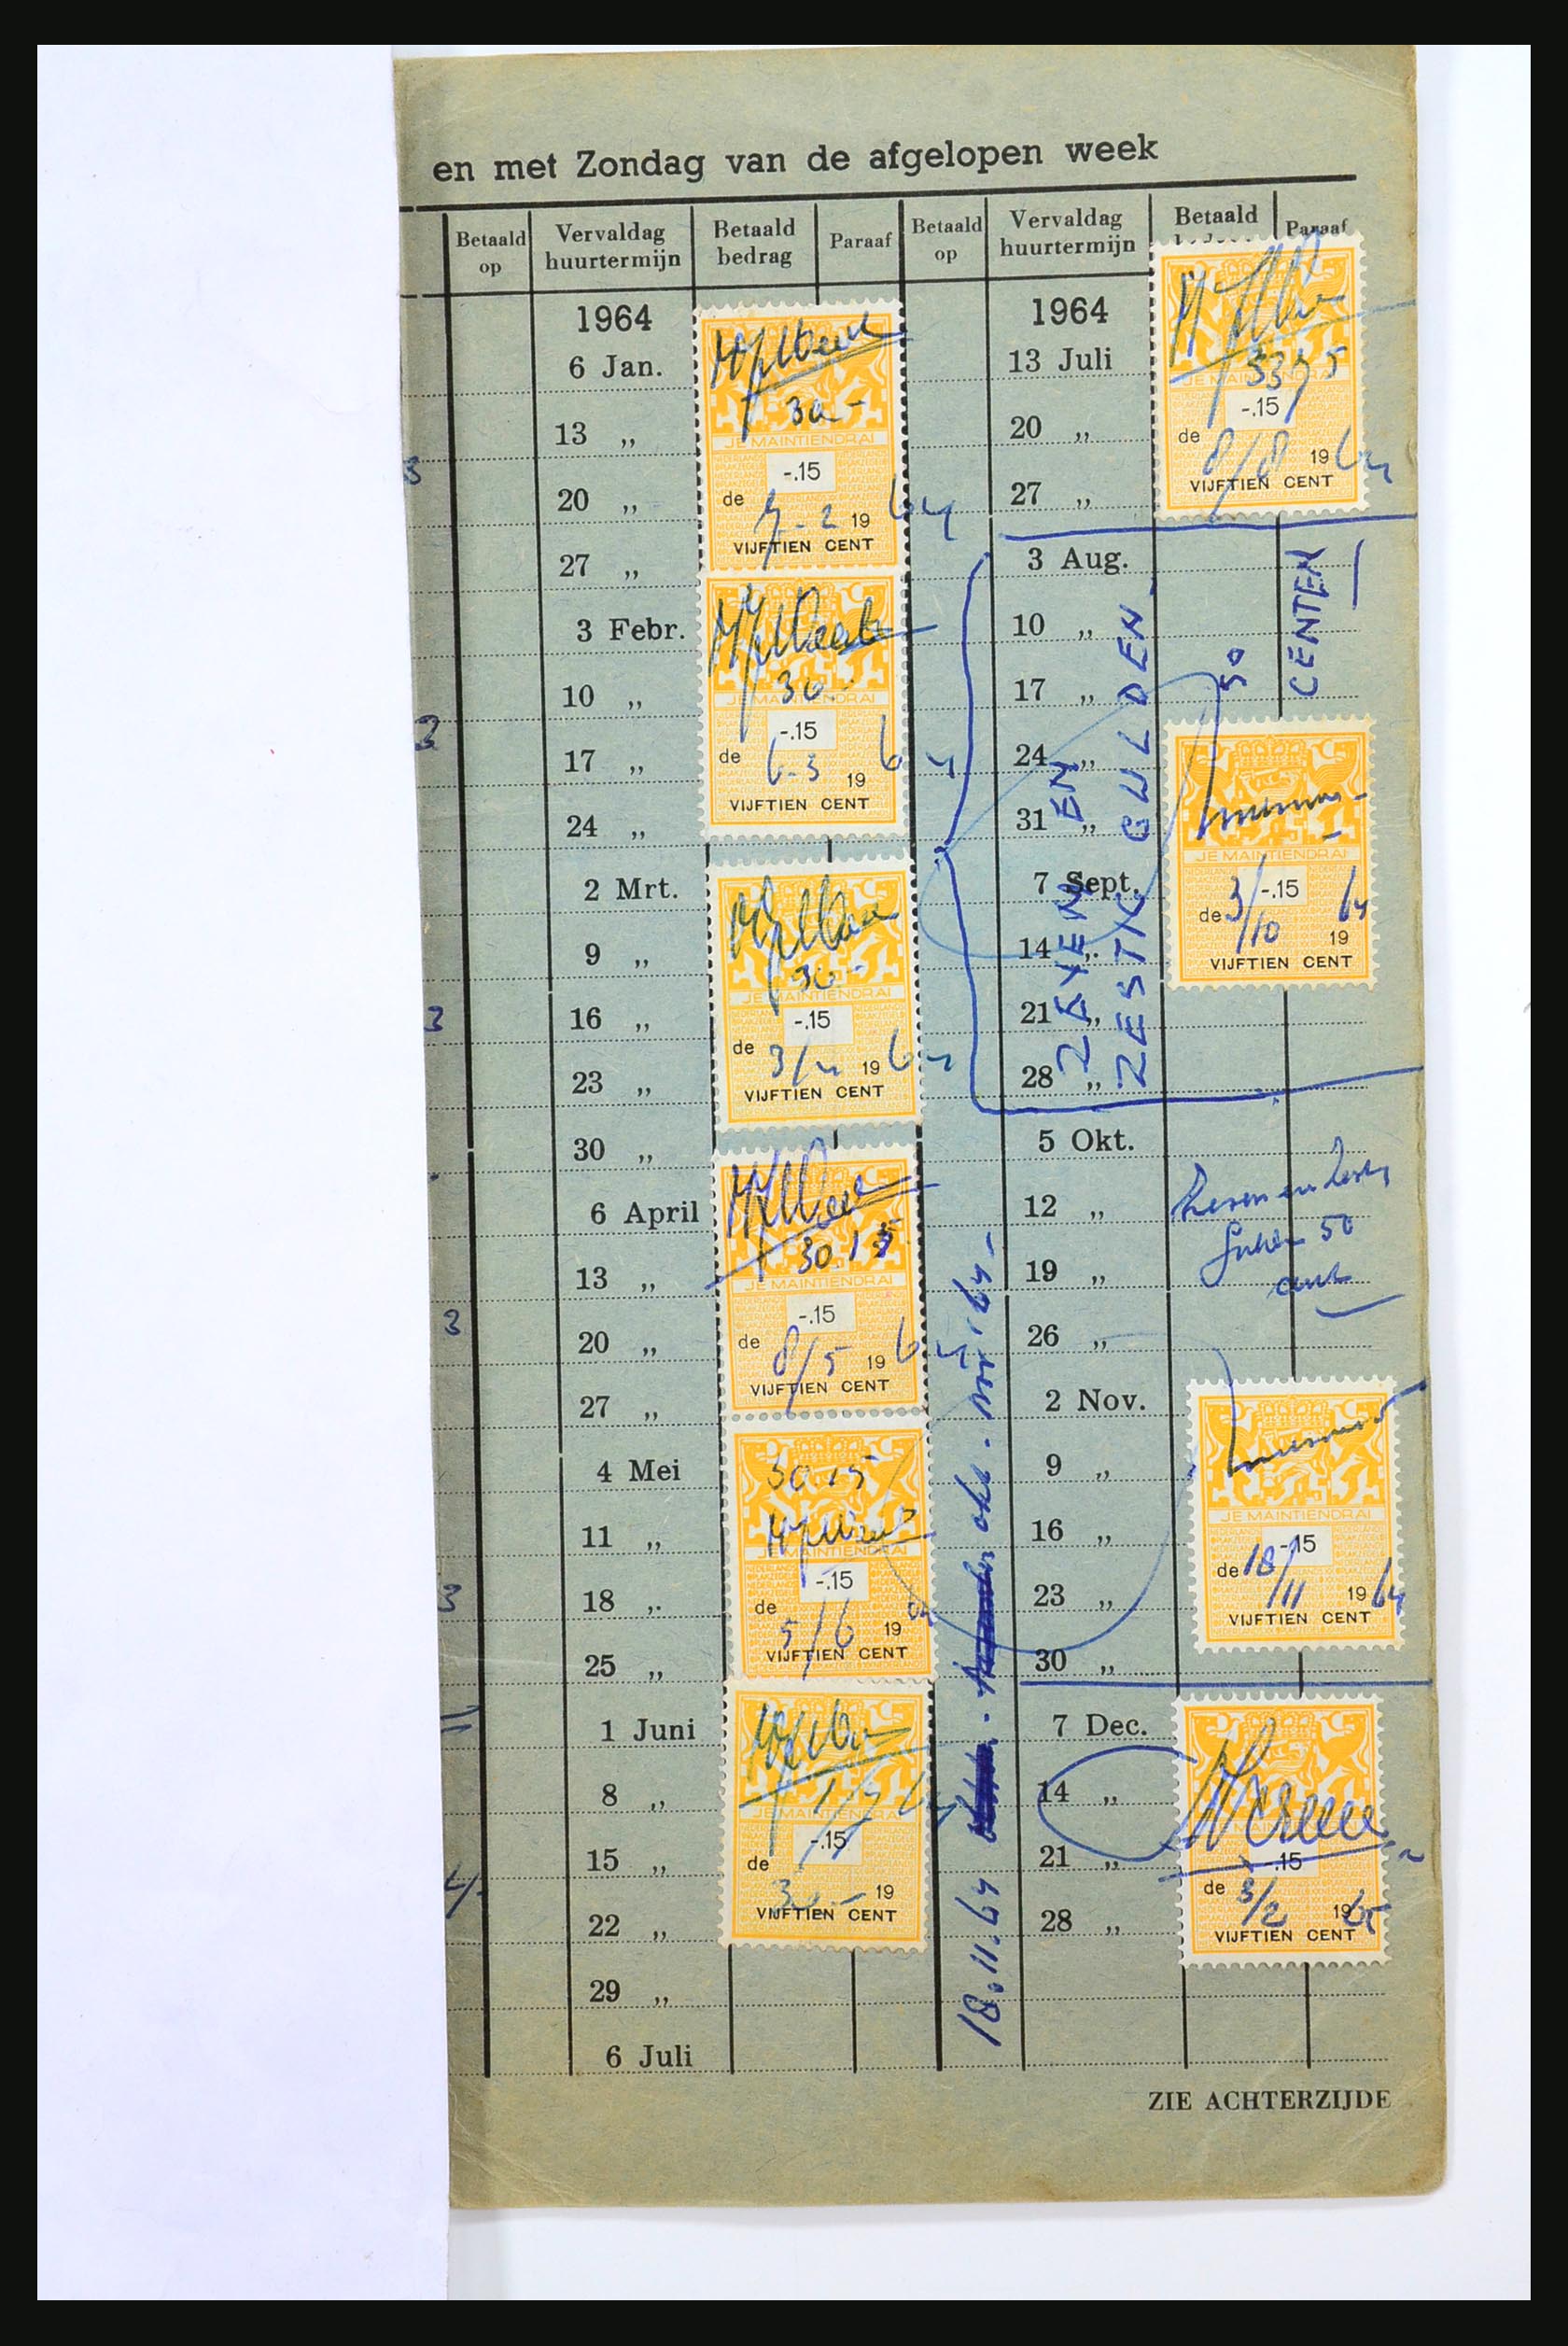 en met Zondag van de afgelopen week
Betaald op
Vervaldag huurtermijn
Betaald bedrag
Paraaf
Betaald op
Vervaldag huurtermijn
Betaald
Paraaf
1964
6 Jan.
13 „
20 „
27 „
3 Febr.
10 „
17 „
24 „
2 Mrt.
9 „
16 „
23 „
30 „
6 April
13 „
20 „
27 „
4 Mei
11 „
18 „
25 „
1 Juni
8 „
15 „
22 „
29 „
6 Juli
30 -
JE MAINTIENDRAI
-.15
de 7-2 1964
VIJFTIEN CENT
30.-
JE MAINTIENDRAI
-.15
de 6-3 1964
VIJFTIEN CENT
30 -
JE MAINTIENDRAI
-.15
de 3/4 1964
VIJFTIEN CENT
30.15
JE MAINTIENDRAI
-.15
de 8/5 1964
VIJFTIEN CENT
30.15
JE MAINTIENDRAI
-.15
de 5/6 1964
VIJFTIEN CENT
JE MAINTIENDRAI
-.15
de 30.- 19
VIJFTIEN CENT
18.11.64
okt. nov. 64 -
1964
13 Juli
20 „
27 „
3 Aug.
10 „
17 „
24 „
31 „
7 Sept.
14 „
21 „
28 „
5 Okt.
12 „
19 „
26 „
2 Nov.
9 „
16 „
23 „
30 „
7 Dec.
14 „
21 „
28 „
33 75
-.15
de 8/8 1964
VIJFTIEN CENT
ZEVEN EN
ZESTIG GULDEN
50
CENTEN
JE MAINTIENDRAI
-.15
de 3/10 1964
VIJFTIEN CENT
Zeven en zestig
gulden 50
cent
JE MAINTIENDRAI
-.15
de 18/11 1964
VIJFTIEN CENT
-.15
de 3/2 1965
VIJFTIEN CENT
ZIE ACHTERZIJDE